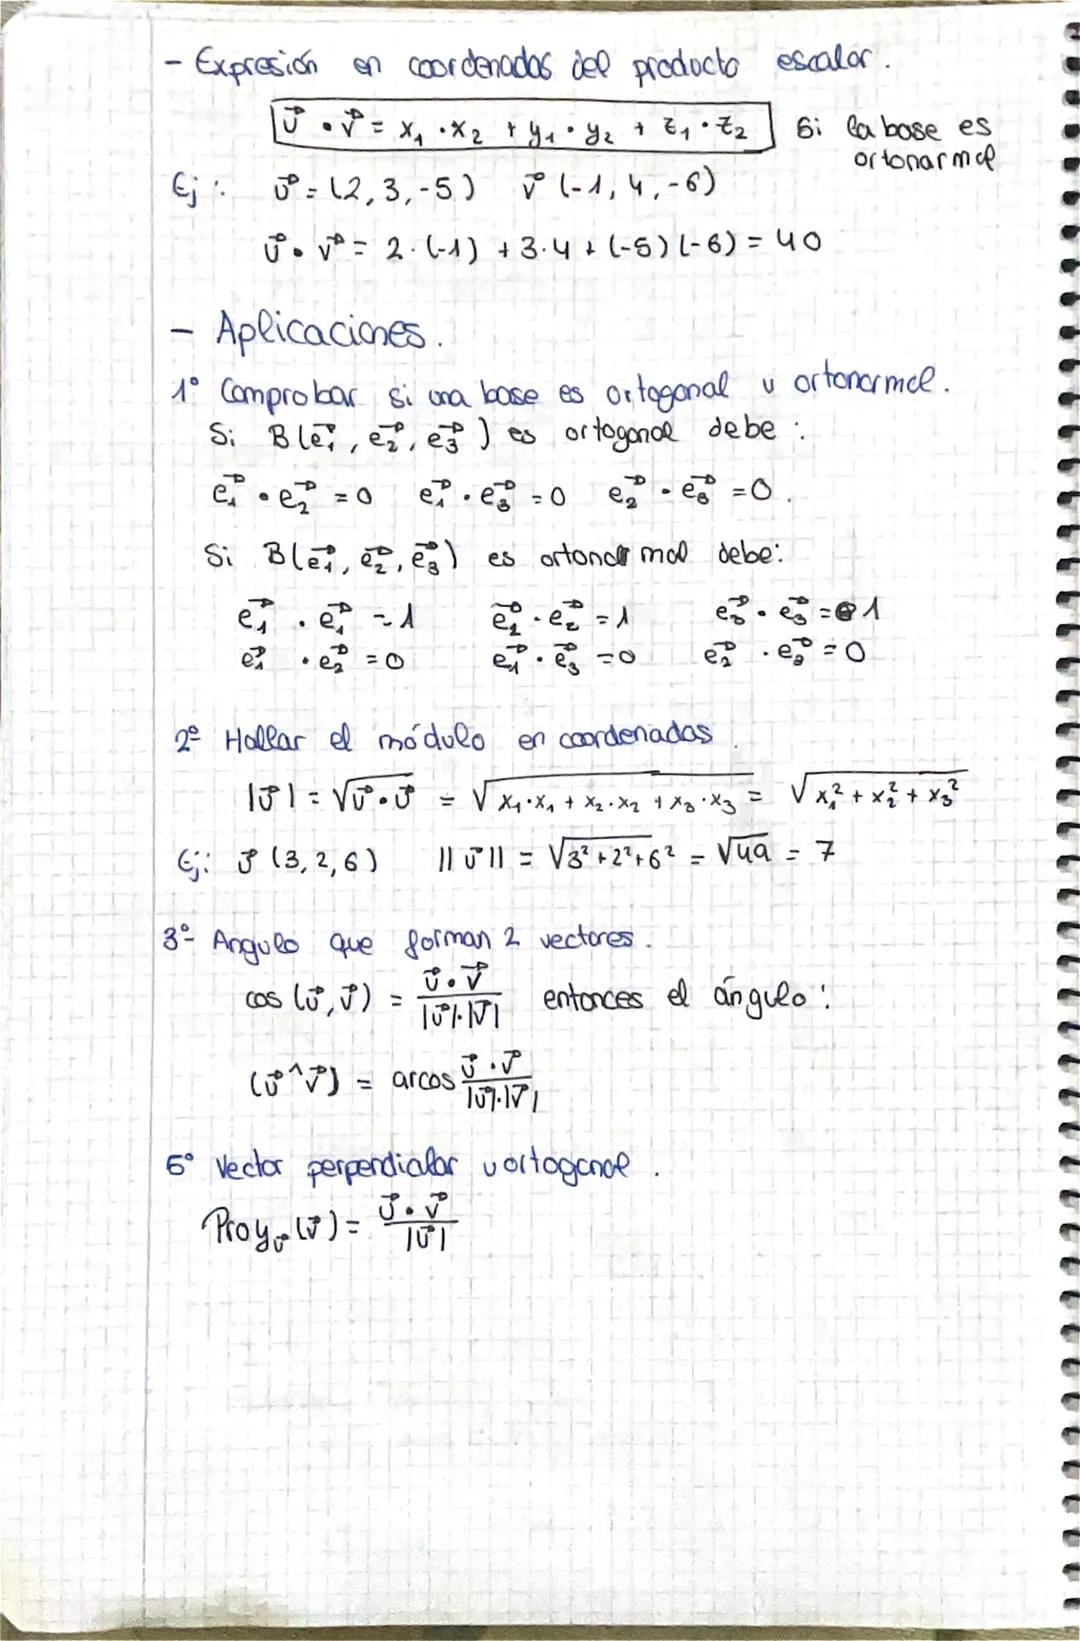 - Expresión en coordenadas del producto escalar.
u⃗ • v⃗ = x₁ · x₂ + y₁ · y₂ + z₁ · z₂ Si la base es
ortonormal
Ej: u⃗ = (2, 3, -5) v⃗ (-1, 4, -6)
u⃗ • v⃗ = 2 · (-1) + 3 · 4 + (-5) (-6) = 40
- Aplicaciones.
1º Comprobar si una base es ortogonal u ortonormal.
Si B(e₁⃗, e₂⃗, e₃⃗) es ortogonal debe:
e₁⃗ • e₂⃗ = 0 e₁⃗ • e₃⃗ = 0 e₂⃗ • e₃⃗ = 0.
Si B(e₁⃗, e₂⃗, e₃⃗) es ortonormal debe:
e₁⃗ · e₁⃗ = 1 e₂⃗ · e₂⃗ = 1 e₃⃗ · e₃⃗ = 1
e₁⃗ · e₂⃗ = 0 e₁⃗ · e₃⃗ = 0 e₂⃗ · e₃⃗ = 0
2º Hallar el módulo en coordenadas.
|v⃗| = √v⃗ • v⃗ = √x₁·x₁ + x₂·x₂ + x₃·x₃ = √x₁² + x₂² + x₃²
Ej: v⃗ (3, 2, 6) ||v⃗|| = √3² + 2² + 6² = √49 = 7
3º Angulo que forman 2 vectores.
cos (u⃗, v⃗) = u⃗ • v⃗ / |u⃗| · |v⃗| entonces el ángulo:
(u⃗ ^ v⃗) = arcos u⃗ · v⃗ / |u⃗| · |v⃗|
5º Vector perpendialar u ortogonal.
Proy u⃗ (v⃗) = u⃗ • v⃗ / |u⃗|